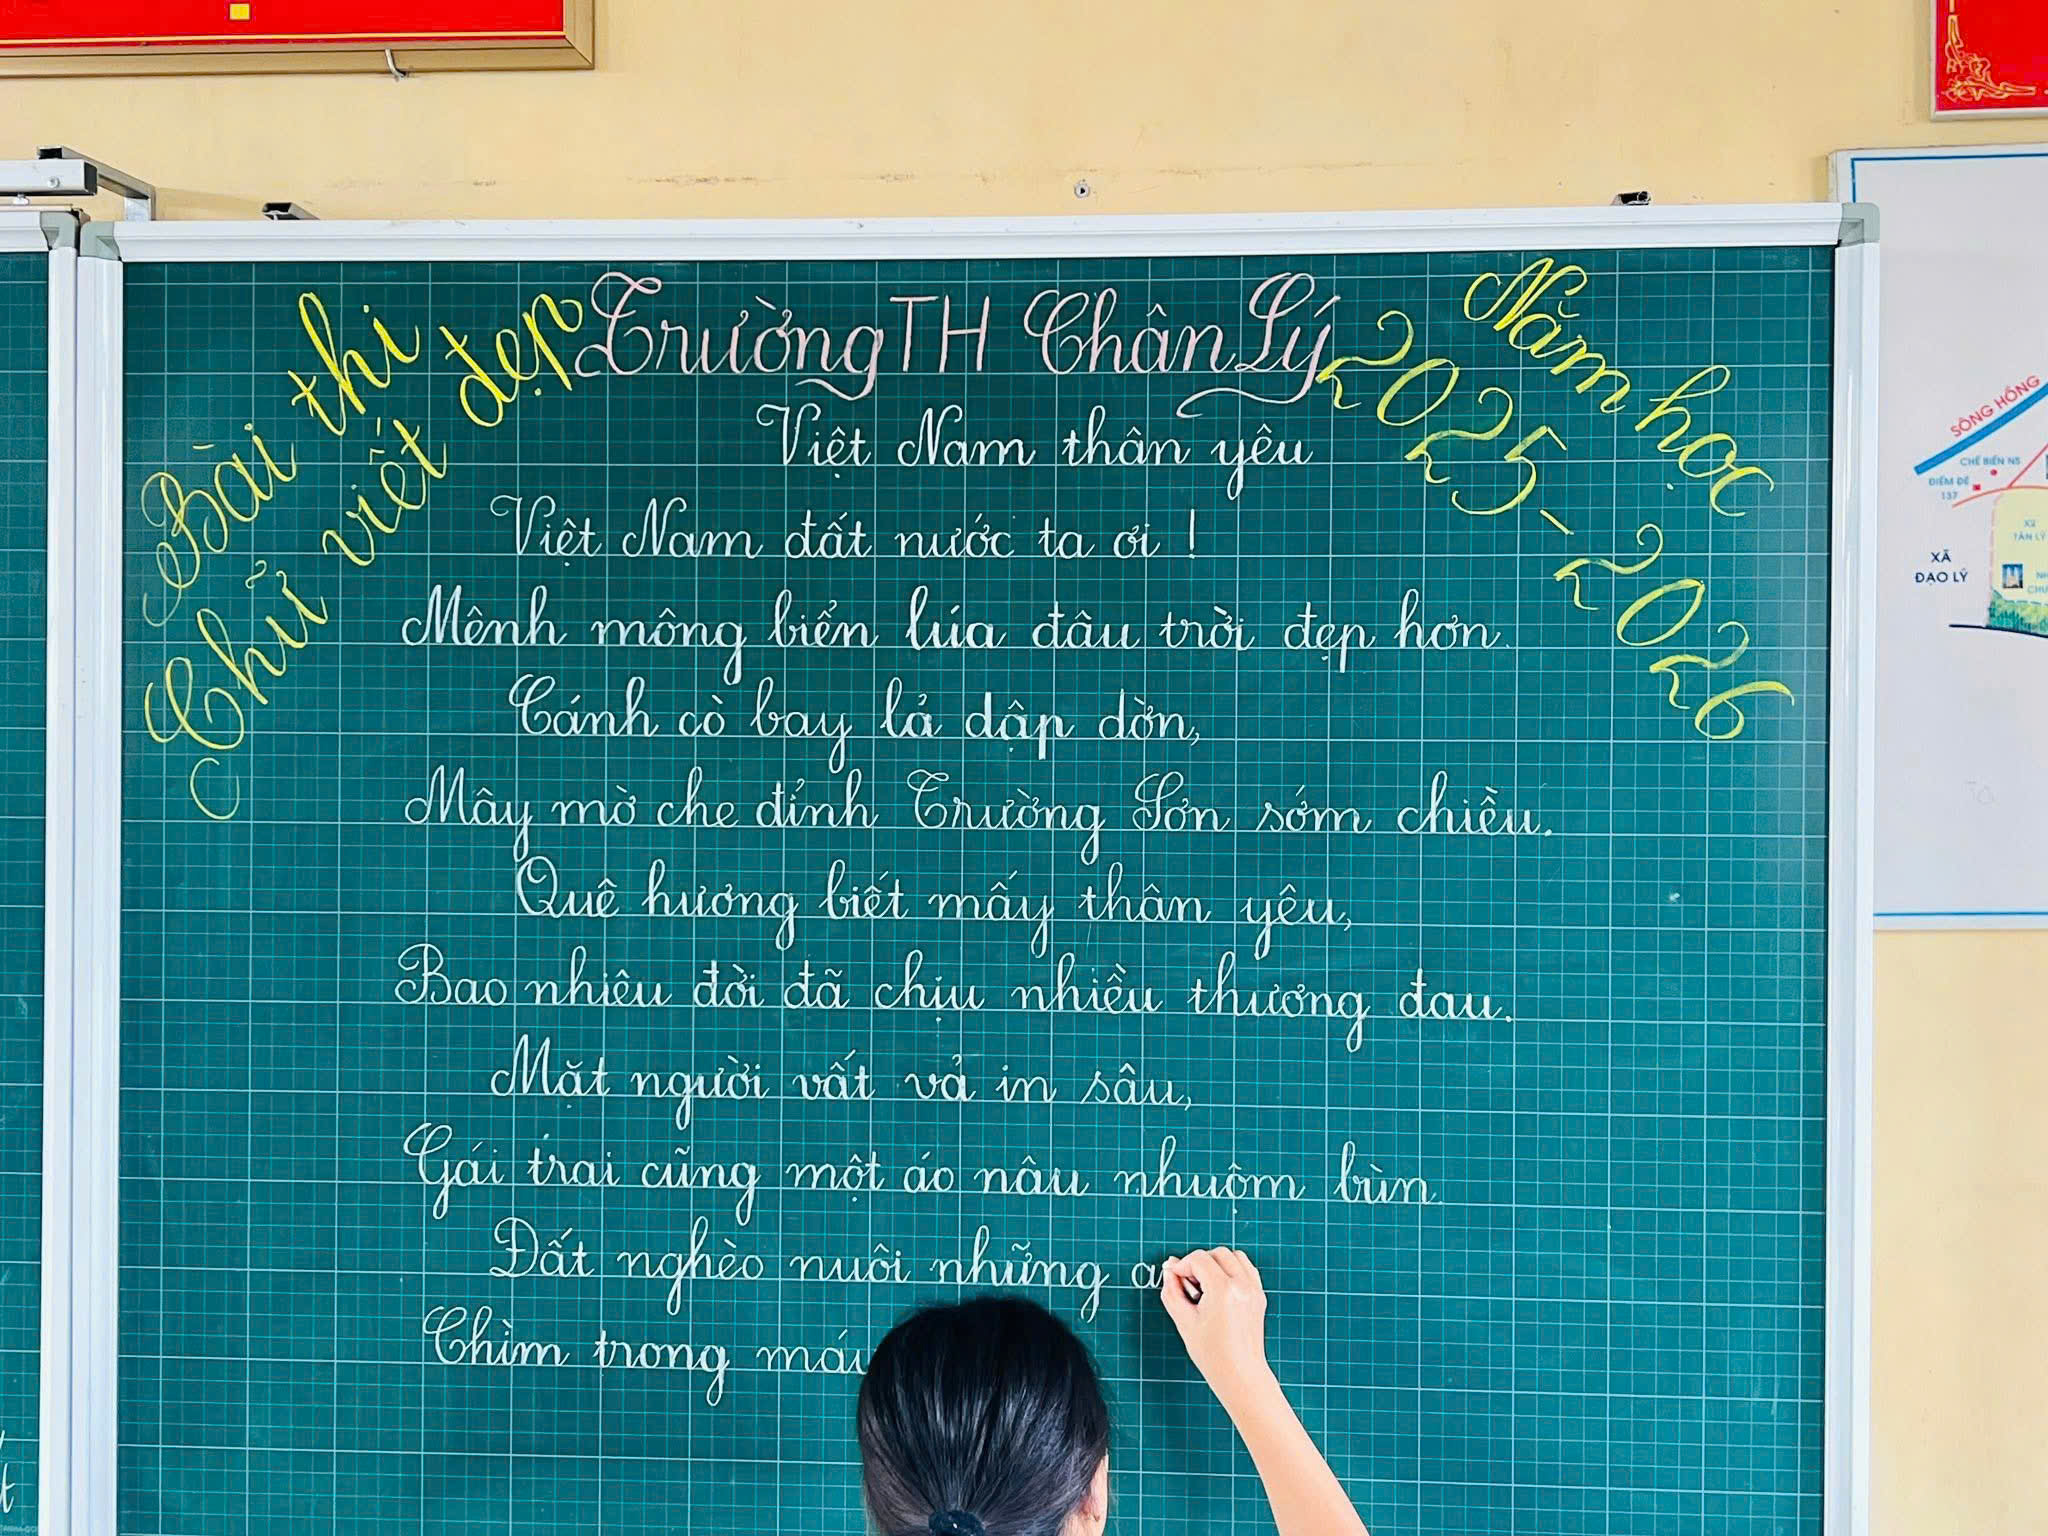 Bài thi
Chữ viết đẹp
Trường TH Chân Lý
Năm học
2025-2026
Việt Nam thân yêu
Việt Nam đất nước ta ơi !
Mênh mông biển lúa đâu trời đẹp hơn.
Cánh cò bay lả dập dờn,
Mây mờ che đỉnh Trường Sơn sớm chiều.
Quê hương biết mấy thân yêu,
Bao nhiêu đời đã chịu nhiều thương đau.
Mặt người vất vả in sâu,
Gái trai cũng một áo nâu nhuộm bùn
Đất nghèo nuôi những
Chìm trong
SÔNG HỒNG
CHẾ BIẾN NS
ĐIẾM ĐÊ
137
XÃ
TÂN LÝ
XÃ
ĐẠO LÝ